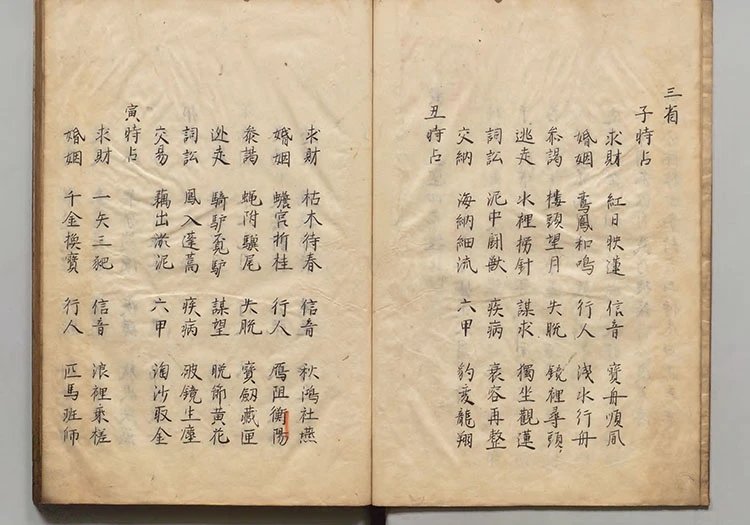 三省
子時占
求財 紅日映蓮 信音 寶舟順風
婚姻 鸾鳳和鳴 行人 淺水行舟
叅謁 樓頭望月 失脫 鏡裡尋頭
逃走 水裡撈針 謀求 獨坐觀蓮
詞訟 泥中鬪獸 疾病 衰容再整
交納 海納細流 六甲 豹变龍翔
丑時占
求財 枯木待春 信音 秋鴻社燕
婚姻 蟾宮折桂 行人 鴈阻衡陽
叅謁 蝇附驥尾 失脫 寶劔藏匣
逃走 騎驴覓驴 謀望 脫節黃花
詞訟 鳳入蓬蒿 疾病 破镜生塵
交易 藕出淤泥 六甲 淘沙取金
寅時占
求財 一矢三豝 信音 浪裡乘槎
婚姻 千金換寶 行人 匹馬班師